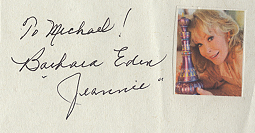 To Michael!
Barbara Eden
"Jeannie"